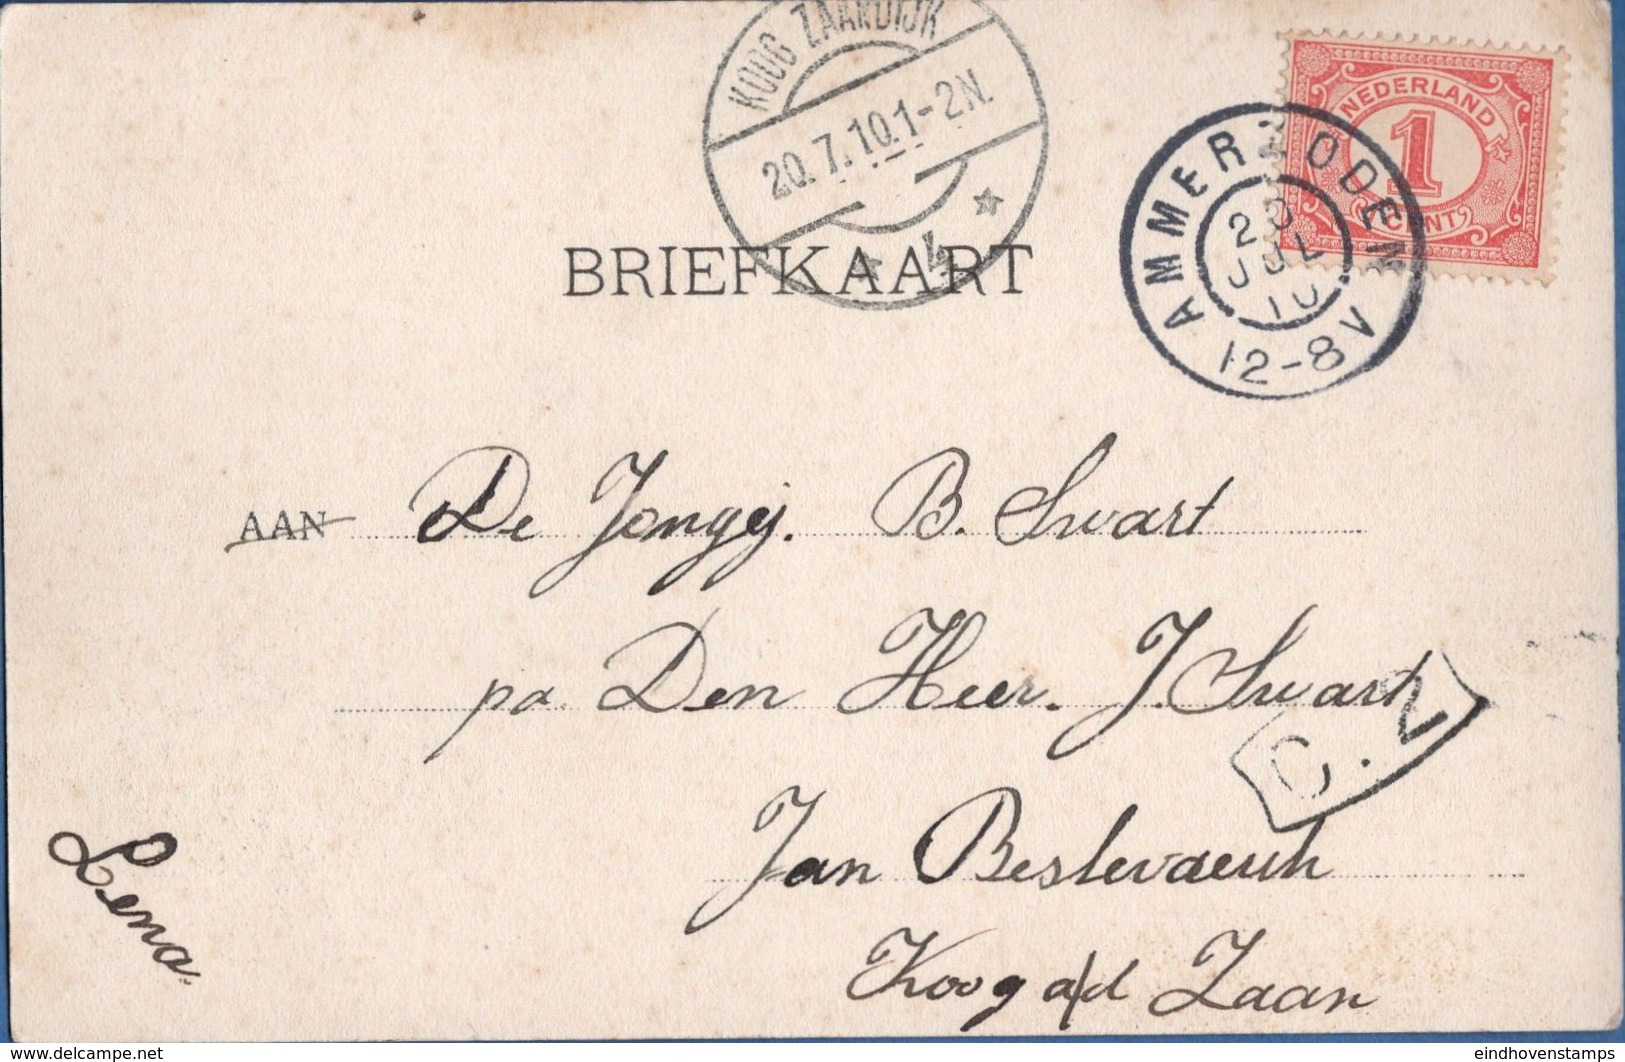 KOOG ZAANDIJK
20.7.10.1-2N.
* 4 *
NEDERLAND
1
CENT
AMMERZODEN
20
JUL
10
12-8V
BRIEFKAART
AAN De Jongej. B. Swart
pa. Den Heer. J. Swart
C.2
Jan Bestevaerth
Koog a/d Zaan
Lena.
www.delcampe.net
eindhovenstamps